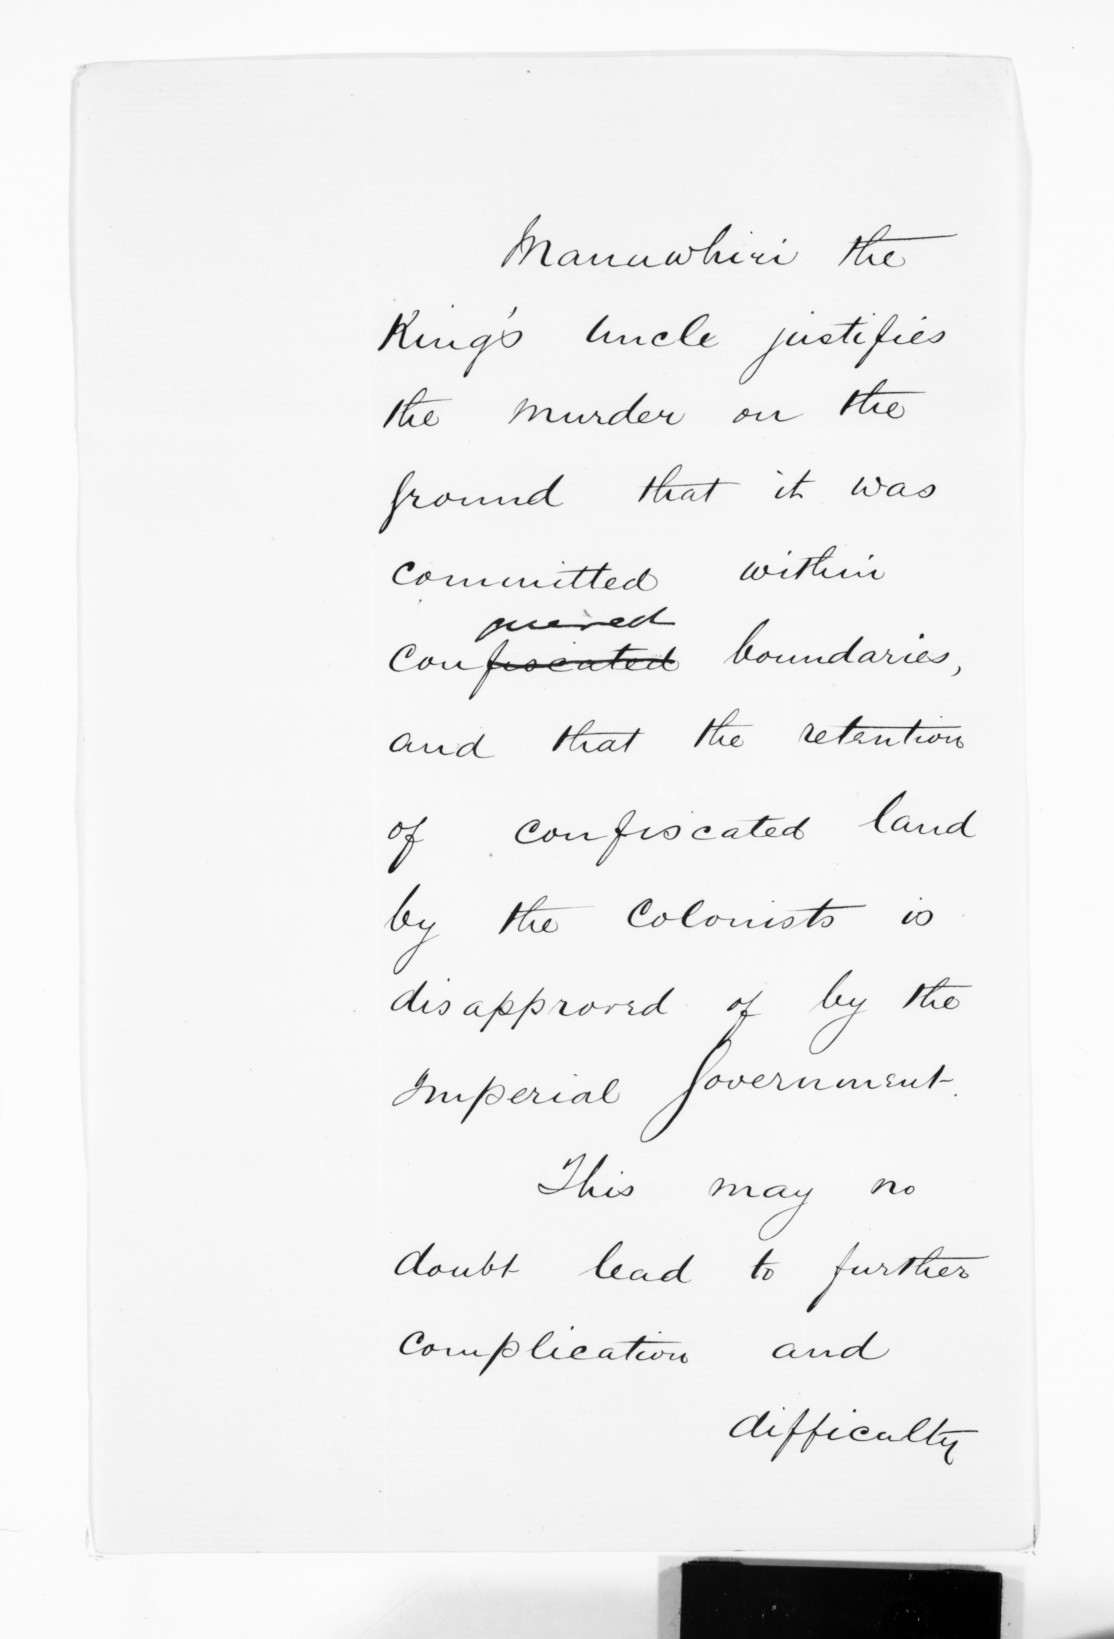 Manuwhiri the
King's Uncle justifies
the murder on the
ground that it was
committed within
quered
confiscated boundaries,
and that the retention
of confiscated land
by the Colonists is
disapproved of by the
Imperial Government.
This may no
doubt lead to further
complication and
difficulty